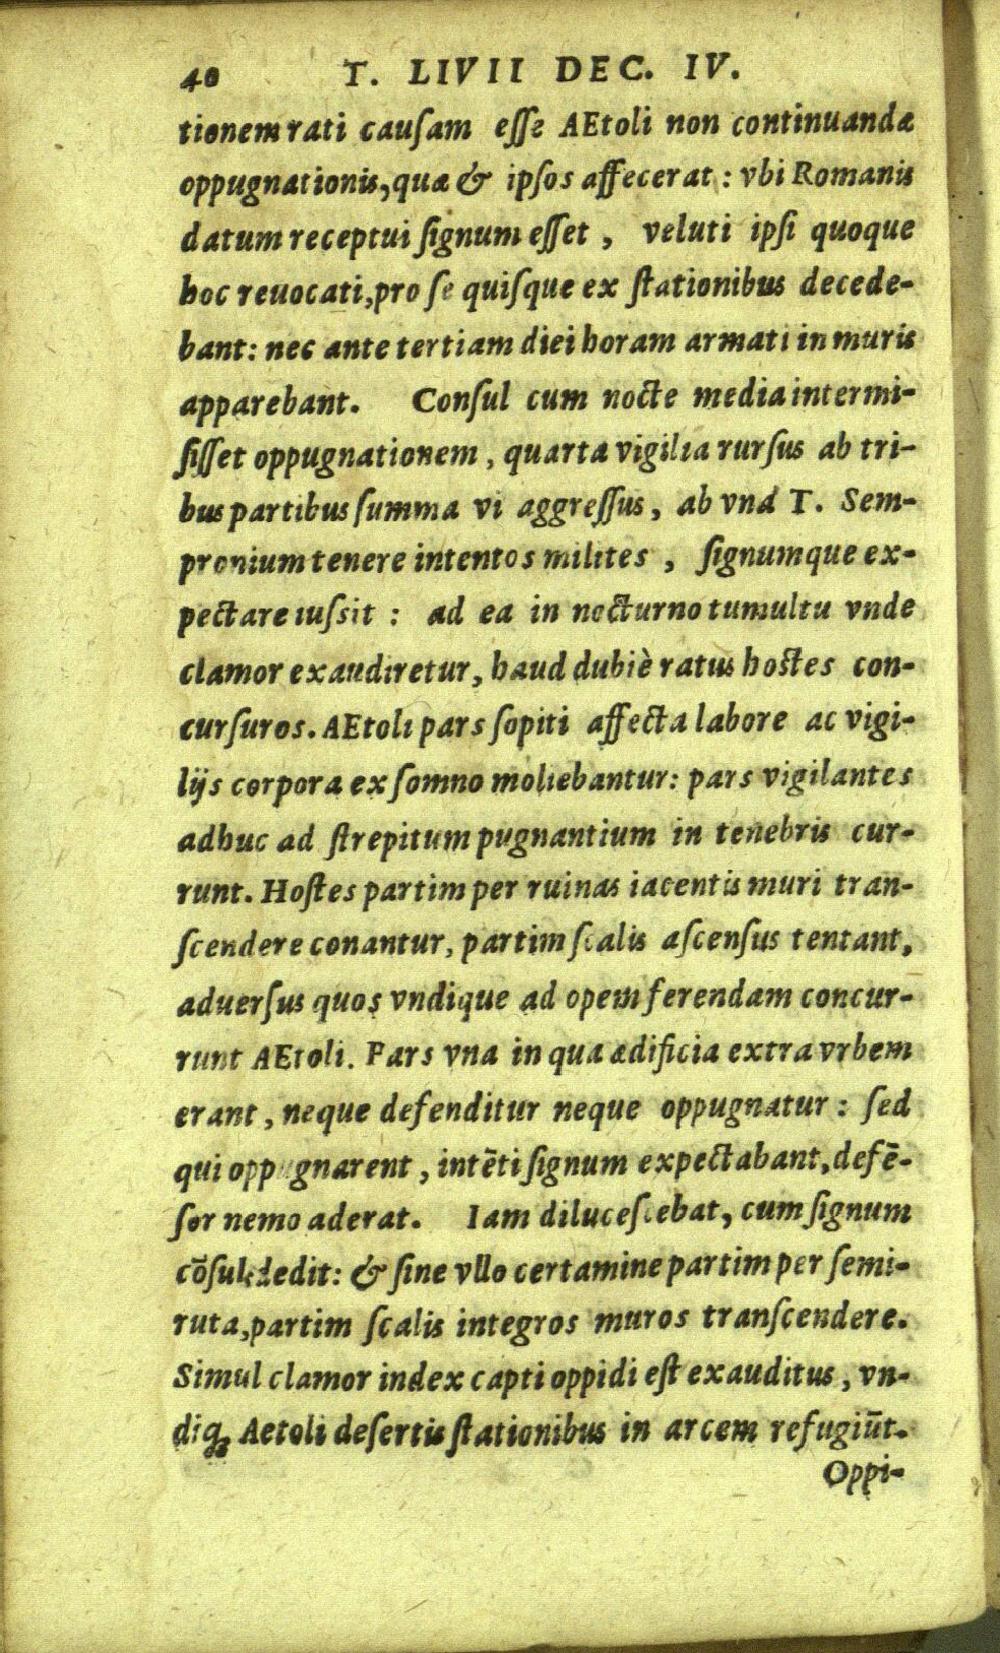 40 T. LIVII DEC. IV.
tionem rati cauſam eſſe AEtoli non continuandæ
oppugnationis, quæ & ipſos affecerat : vbi Romanis
datum receptui ſignum eſſet , veluti ipſi quoque
hoc reuocati, pro ſe quiſque ex ſtationibus decede-
bant: nec ante tertiam diei horam armati in muris
apparebant. Conſul cum nocte media intermi-
ſiſſet oppugnationem , quarta vigilia rurſus ab tri-
bus partibus ſumma vi aggreſſus, ab vna T. Sem-
pronium tenere intentos milites , ſignumque ex-
pectare iuſsit : ad ea in nocturno tumultu vnde
clamor exaudiretur, haud dubiè ratus hostes con-
curſuros. AEtoli pars ſopiti affecta labore ac vigi-
lijs corpora ex ſomno moliebantur: pars vigilantes
adhuc ad ſtrepitum pugnantium in tenebris cur-
runt. Hoſtes partim per ruinas iacentis muri tran-
ſcendere conantur, partim ſcalis aſcenſus tentant,
aduerſus quos vndique ad opem ferendam concur-
runt AEtoli. Pars vna in qua ædificia extra vrbem
erant , neque defenditur neque oppugnatur : ſed
qui oppugnarent , intēti ſignum expectabant, defē-
ſor nemo aderat. Iam diluceſcebat, cum ſignum
cōſul dedit: & ſine vllo certamine partim per ſemi-
ruta, partim ſcalis integros muros tranſcendere.
Simul clamor index capti oppidi eſt exauditus , vn-
diq; Aetoli deſertis ſtationibus in arcem refugiūt.
Oppi-